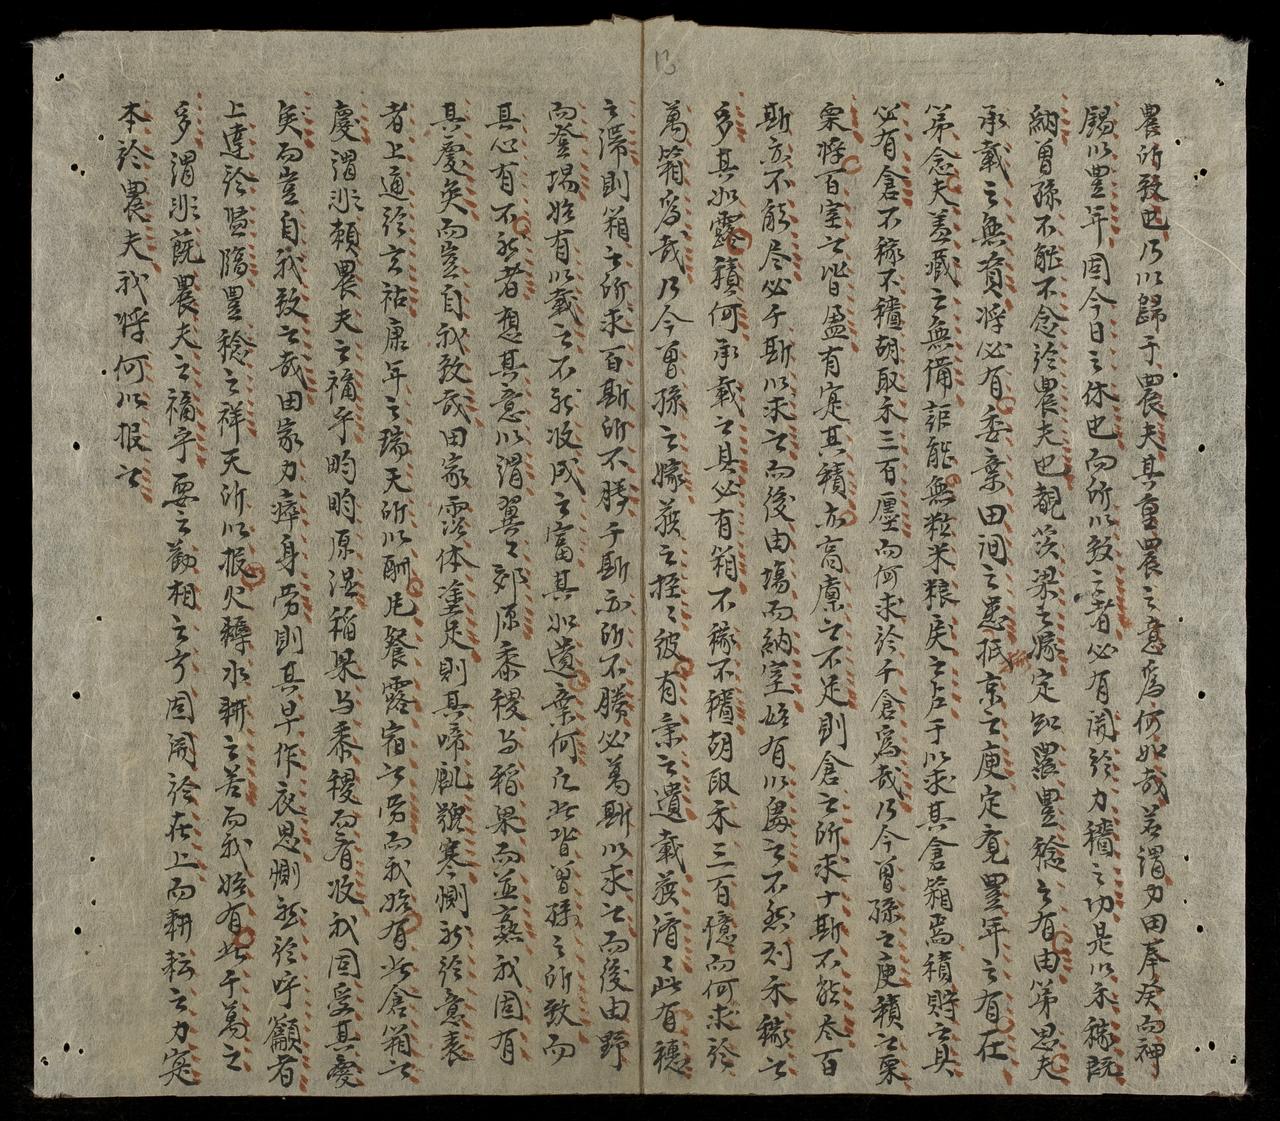 13
農所致也乃以歸于農夫其重農之意爲何如哉若謂力田奉癸而神
賜以豊年固今日之休也而所以致之者必有開於力穡之功是以禾稼既
納曽孫不能不念於農夫也覩茨梁之稼定知羅豊稔之有由第思夫
承載之無資將必有委棄田間之患抵京之庾定竟豊年之有在
第念夫盖藏之無備詎能無粒米粮戾之占于以求其倉箱焉積貯之具
必有倉不稼不穡胡取禾三百廛而何求於千倉爲哉乃今曽孫之庾積之栗
栗將百室之皆盈有寔其積亦高廪之不足則倉之所求十斯不能尽百
斯亦不能尽必千斯以求之而後由塲而納室始有以爲之不然刈禾穫之
多其如露積何承載之具必有箱不稼不穡胡取禾三百億而何求於
萬箱爲哉乃今曽孫之嫁穫之挃之彼有秉之遺載穫濟之此有穗
之滯則箱之所求百斯所不勝千斯亦所不勝必萬斯以求之而後由野
而登塲始有以載之不然收成之富其如遺棄何凡此皆曽孫之所致而
其心有不然者想其意以謂翼之郊原黍稷与稻粱而並熟我固有
其慶矣而豈自我致哉田家霑体塗足則其啼飢號寒惻然於意表
者上通於玄祐康年之瑞天所以酬尼餐露宿之勞而我始有此倉箱之
慶謂非頼農夫之福乎畇畇原湿稻粱与黍稷而有收我固受其慶
矣而豈自我致之哉田家力瘁身勞則其早作夜思惻然於呼籲者
上達於監臨豊稔之祥天所以报火耨水耕之苦而我始有此千萬之
多謂非藐農夫之福乎要之勸相之方固開於在上而耕耘之力寔
本於農夫我將何以报之